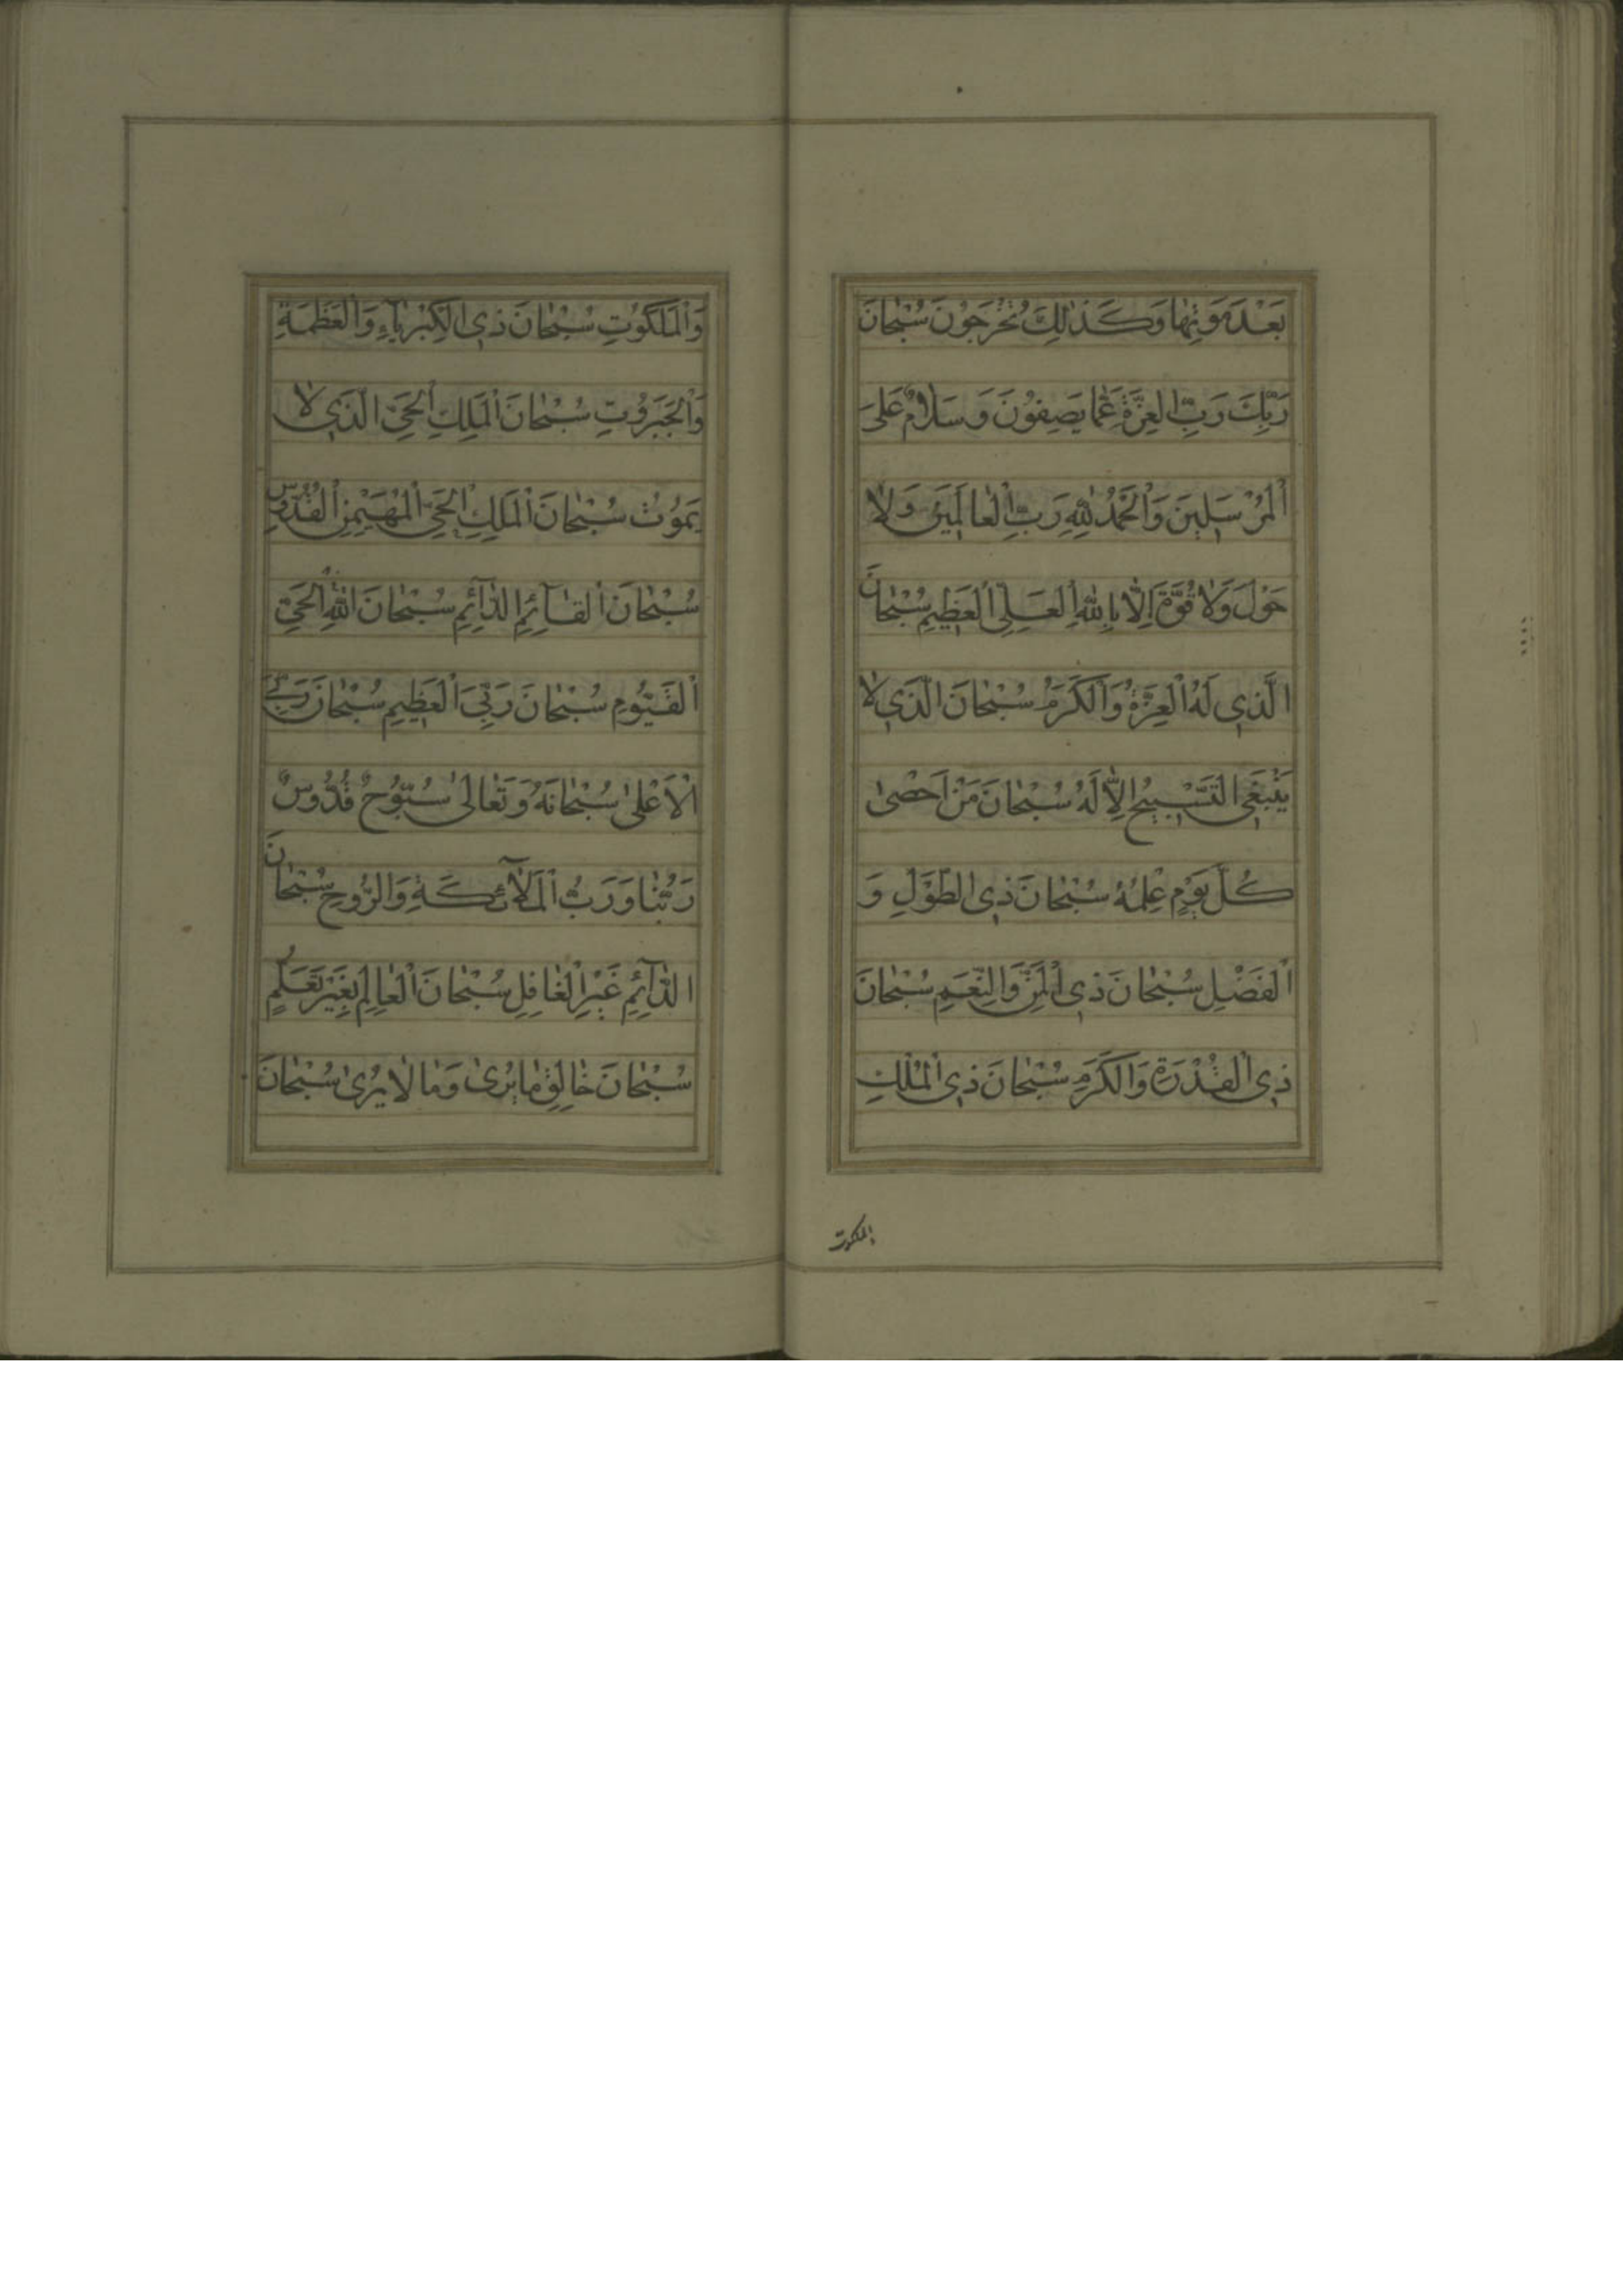 بَعْدَ مَوْتِهٰا وَكَذٰلِكَ تُخْرَجُونَ سُبْحٰانَ
رَبِّكَ رَبِّ الْعِزَّةِ عَمّٰا يَصِفُونَ وَسَلٰامٌ عَلَى
اْلمُرْسَلِينَ وَاْلحَمْدُ لِلّٰهِ رَبِّ اْلعٰالَمِينَ وَلاٰ
حَوْلَ وَلاٰ قُوَّةَ اِلّٰا بِاللّٰهِ اْلعَلِىِّ اْلعَظِيمِ سُبْحٰانَ
الَّذِي لَهُ اْلعِزَّةُ وَاْلكَرَمُ سُبْحٰانَ الَّذِي لاٰ
يَنْبَغِي التَّسْبِيحُ اِلاّٰ لَهُ سُبْحٰانَ مَنْ اَحْصٰى
كُلَّ يَوْمٍ عِلْمُهُ سُبْحٰانَ ذِى الطَّوْلِ وَ
اْلفَضْلِ سُبْحٰانَ ذِى اْلمَنِّ وَالنِّعَمِ سُبْحٰانَ
ذِي اْلقُدْرَةِ وَالْكَرَمِ سُبْحٰانَ ذِي اْلمُلْكِ
والملكوت
وَاْلمَلَكُوتِ سُبْحٰانَ ذِي الْكِبْرِيٰآءِ وَاْلعَظَمَةِ
وَاْلجَبَرُوتِ سُبْحٰانَ اْلمَلِكِ اْلحَيِّ الَّذِي لاٰ
يَمُوتُ سُبْحٰانَ اْلمَلِكِ اْلحَيِّ اْلمُهَيْمِنِ اْلقُدُّوسِ
سُبْحٰانَ اْلقٰآئِمِ الدّٰآئِمِ سُبْحٰانَ اللّٰهِ اْلحَيِّ
اْلقَيُّومِ سُبْحٰانَ رَبِّيَ اْلعَظِيمِ سُبْحٰانَ رَبِّيَ
اْلاَعْلىٰ سُبْحٰانَهُ وَتَعٰالىٰ سُبُّوحٌ قُدُّوسٌ
رَبُّنٰا وَرَبُّ اْلمَلاٰۤئِكَةِ وَالرُّوحِ سُبْحٰانَ
الدّٰآئِمِ غَيْرِ الْغٰافِلِ سُبْحٰانَ اْلعٰالِمِ بِغَيْرِ تَعَلُّمٍ
سُبْحٰانَ خٰالِقِ مٰا يُرىٰ وَمٰا لاٰ يُرىٰ سُبْحٰانَ